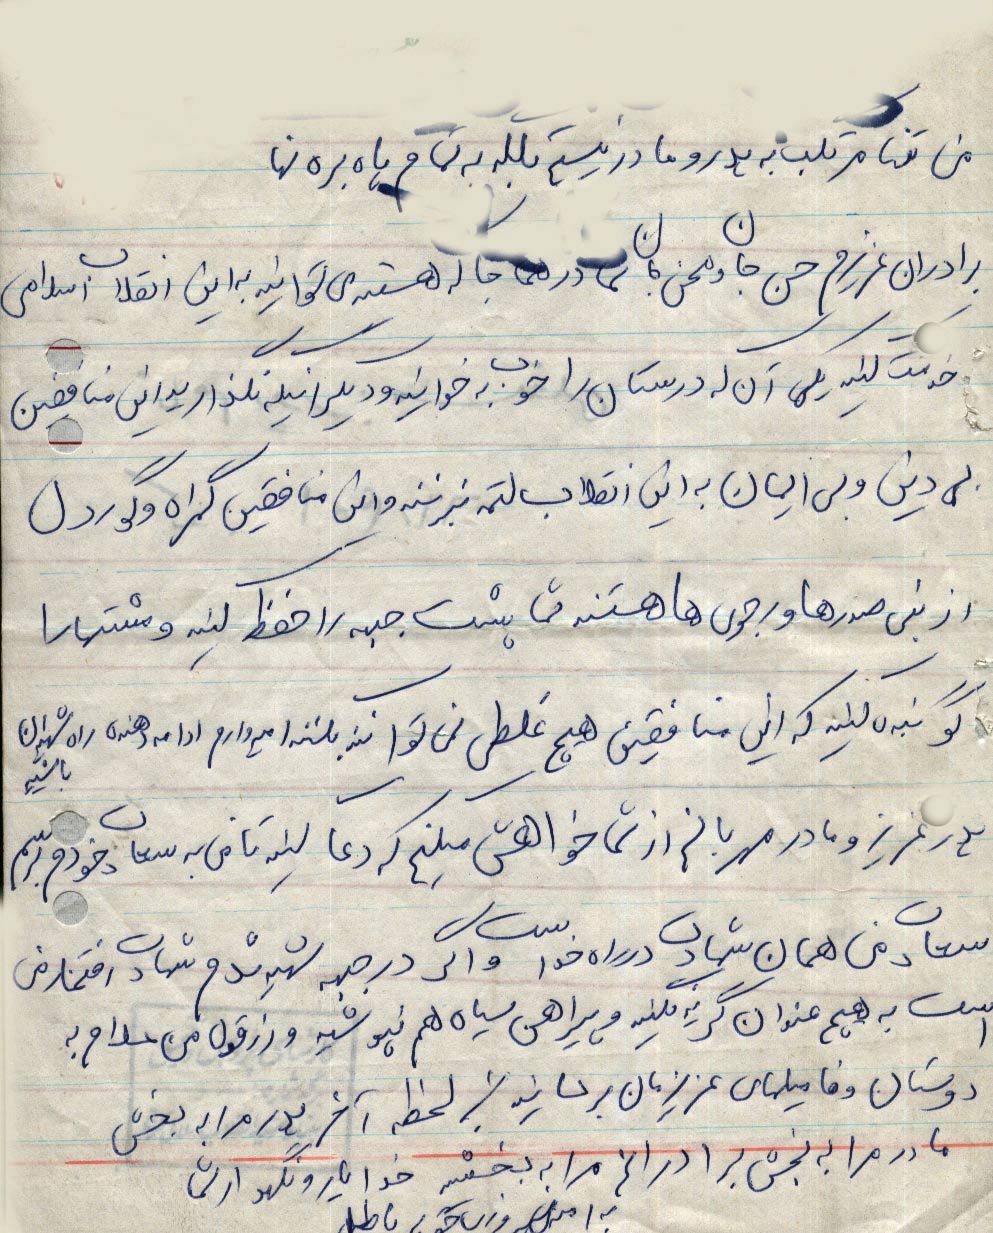 من تنها مرتبط به پدر و مادر نیستم بلکه به تمام
برادران عزیزم حسن جان و محسن جان شما در هر کجا که هستید می توانید به این انقلاب اسلامی
خدمت کنید یکی آن که درستان را خوب به خوانید و دیگر اینکه نگذارید این منافقین
بی دین و بی ایمان به این انقلاب لتمه نزنند و این منافقین گمراه و کور دل
از بنی صدرها و رجوی ها هستند شما پشت جبهه را حفظ کنید و مشتها را
گونیده کنید که این منافقین هیچ غلطی نمی توانند بکنند امیدوارم ادامه دهنده راه شهیدان
باشید
پدر عزیز و مادر مهربانم از شما خواهش میکنم که دعا کنید تا من به سعادت خودم برسم
سعادت من همان شهادت در راه خداست و اگر در جبهه شهید شدم شهادت افتخار من
است به هیچ عنوان گریه نکنید و پیراهن سیاه هم نپوشید و از قول من سلام به
دوستان و فامیلهای عزیزمان برسانید در لحظه آخر پدر مرا به بخش
مادر مرا به بخش برادرانم مرا به بخشید خدا یار و نگهدار شما
به امید پیروزی حق بر باطل